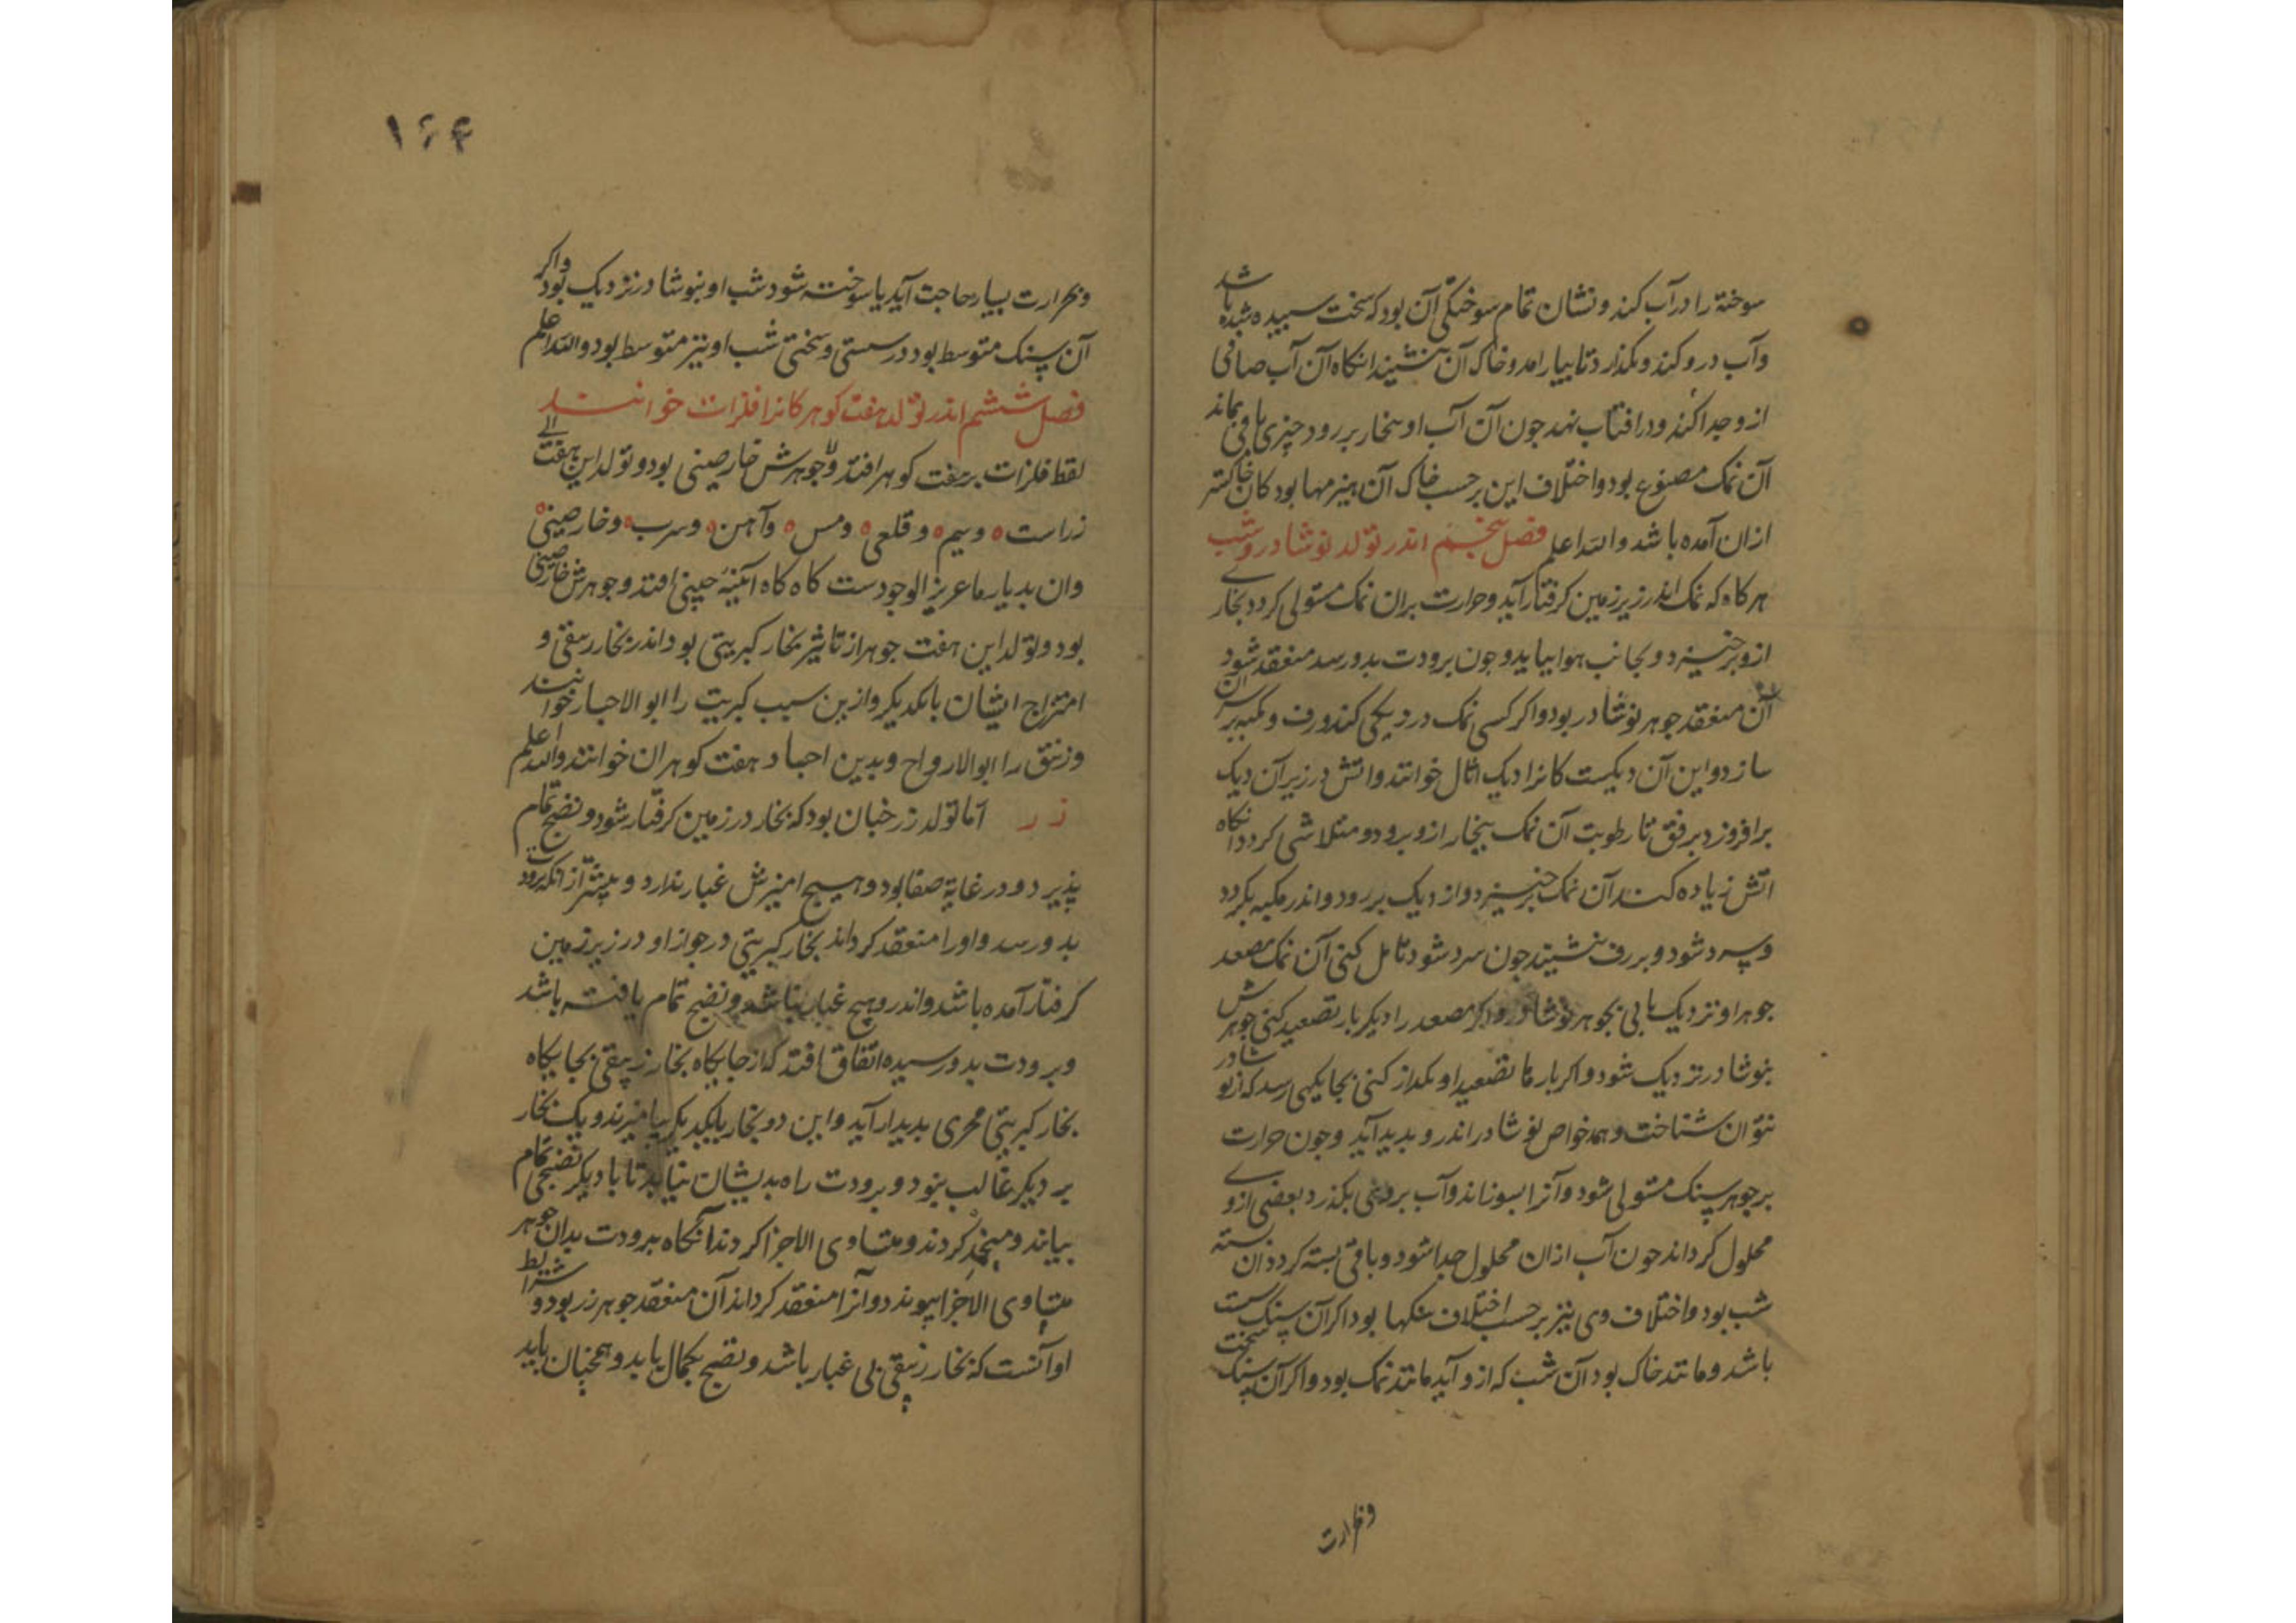 سوخته را در آب کند و نشان تمام سوختگی آن بود که سخت سپیده شده باشد
وآب درو کند و بگذارد تا بیارامد و خاک آن بنشیند انکاه آن آب صافی
ازو جدا کند و در افتاب نهد جون آن آب او بخار بر رود چیزی باقی بماند
آن نمک مصنوع بود و اختلاف این بر حسب خاک آن هیزمها بود کان خاکستر
ازان آمده باشد والله اعلم فصل پنجم اندر تولد نوشادر و شب
هر کاه که نمک اندر زیر زمین کرفتار آید و حرارت بران نمک مستولی کردد بخاری
ازو برخیزد و بجانب هوا بیاید و جون برودت بدو رسد منعقد شود آن
آن منعقد جوهر نوشادر بود و اکر کسی نمک در دیکی کند و رف و مکبه بر سر
سازد و این آن دیکست کانرا دیک اثال خوانند و اتش در زیر آن دیک
برافروزد برفق تا رطوبت آن نمک ببخار ازو برود و متلاشی کردد انکاه
اتش زیاده کند آن نمک برخیزد و از دیک بر رود و اندر مکبه بکردد
و سرد شود و بر رف نشیند جون سرد شود تامل کنی آن نمک مصعد
جوهر او نزدیک یابی بجوهر نوشادر و اکر مصعد را دیکر بار تصعید کنی جوهرش
بنوشادر نزدیک شود و اکر بارها تصعید او بکنی بجایکهی رسد که از نوشادر
نتوان شناخت و همه خواص نوشادر اندرو بدید آید و جون حرارت
بر جوهر سنک مستولی شود و آنرا بسوزاند و آب بروی بکذرد بعضی ازوی
محلول کرداند جون آب ازان محلول جدا شود و باقی بسته کردد آن بسته
شب بود و اختلاف وی نیز بر حسب اختلاف سنکها بود اکر آن سنک سست
باشد و مانند خاک بود آن شب که ازو آید مانند نمک بود و اکر آن سنک سخت
وبحرارت
۱۶۴
وبحرارت بسیار حاجت آید یا سوخته شود شب او بنوشادر نزدیک بود و اکر
آن سنک متوسط بود در سستی و سختی شب او نیز متوسط بود والله اعلم
فصل ششم اندر تولد هفت کوهر کانرا فلزات خوانند
لفظ فلزات بر هفت کوهر افتد و جوهرش خارصینی بود و تولد این هفت
زراست و سیم و قلعی و مس و آهن و سرب و خارصینی
وان بدیار ما عزیز الوجودست کاه کاه آیینه چینی افتد و جوهرش خارصینی
بود و تولد این هفت جوهر از تاثیر بخار کبریتی بود اندر بخار زیبقی و
امتزاج ایشان بایکدیکر وازین سبب کبریت را ابو الاجساد خوانند
وزیبق را ابوالارواح و بدین اجساد هفت کوهران خوانند والله اعلم
زر اما تولد زر چنان بود که بخار در زمین کرفتار شود و نضج تمام
پذیرد و در غایة صفا بود و هیچ امیزش غبار ندارد و پیشتر از انکه برودت
بدو رسد و او را منعقد کرداند بخار کبریتی در جواز او در زیر زمین
کرفتار آمده باشد و اندرو هیچ غبار نباشد و نضج تمام یافته باشد
و برودت بدو رسیده اتفاق افتد که از جایکاه بخار زیبقی بجایکاه
بخار کبریتی مجری بدیدار آید و این دو بخار بایکدیکر بیامیزند و یک بخار
بر دیکر غالب نبود و برودت راه بدیشان نیابد تا با دیکر نضجی تمام
بیابند و کردند و متساوی الاجزا کردند آنکاه برودت بدان جوهر
متساوی الاجزا پیوندد و آنرا منعقد کرداند آن منعقد جوهر زر بود و شرایط
او آنست که بخار زیبقی بی غبار باشد و نضج بکمال یابد و همچنان باید